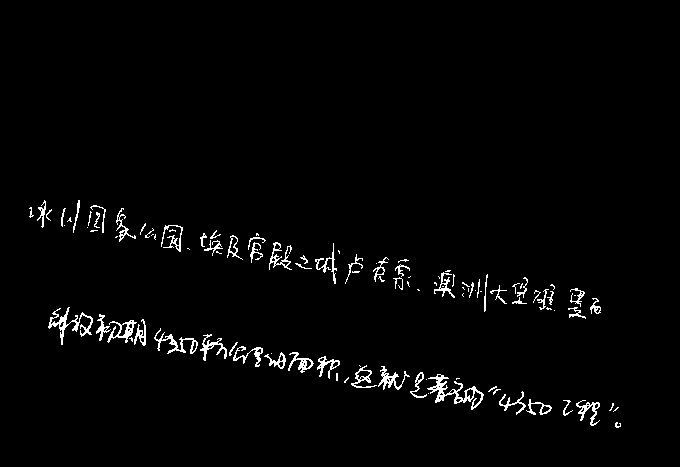 冰川国家公园、埃及宫殿之城卢克索、澳洲大堡礁、墨西
解放初期4350平方公里的面积,这就是著名的“4350工程”。